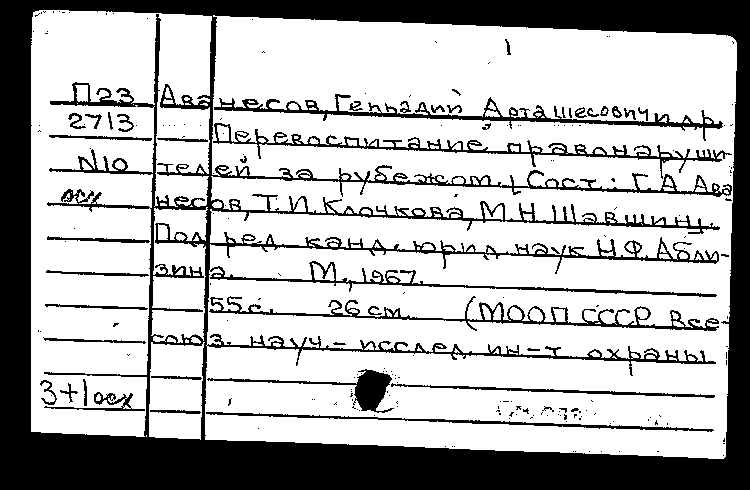 1
П23 Аванесов, Геннадий Арташесович и др.
27/3 Перевоспитание правонаруши-
N10 телей за рубежом. [Сост.: Г.А. Ава
несов, Т.И. Клочкова, М.Н. Шавшин].
Под ред. канд. юрид. наук Н.Ф. Абли-
зина. М., 1967.
55 с. 26 см. (МООП СССР. Все-
союз. науч.-исслед. ин-т охраны
3+1осх